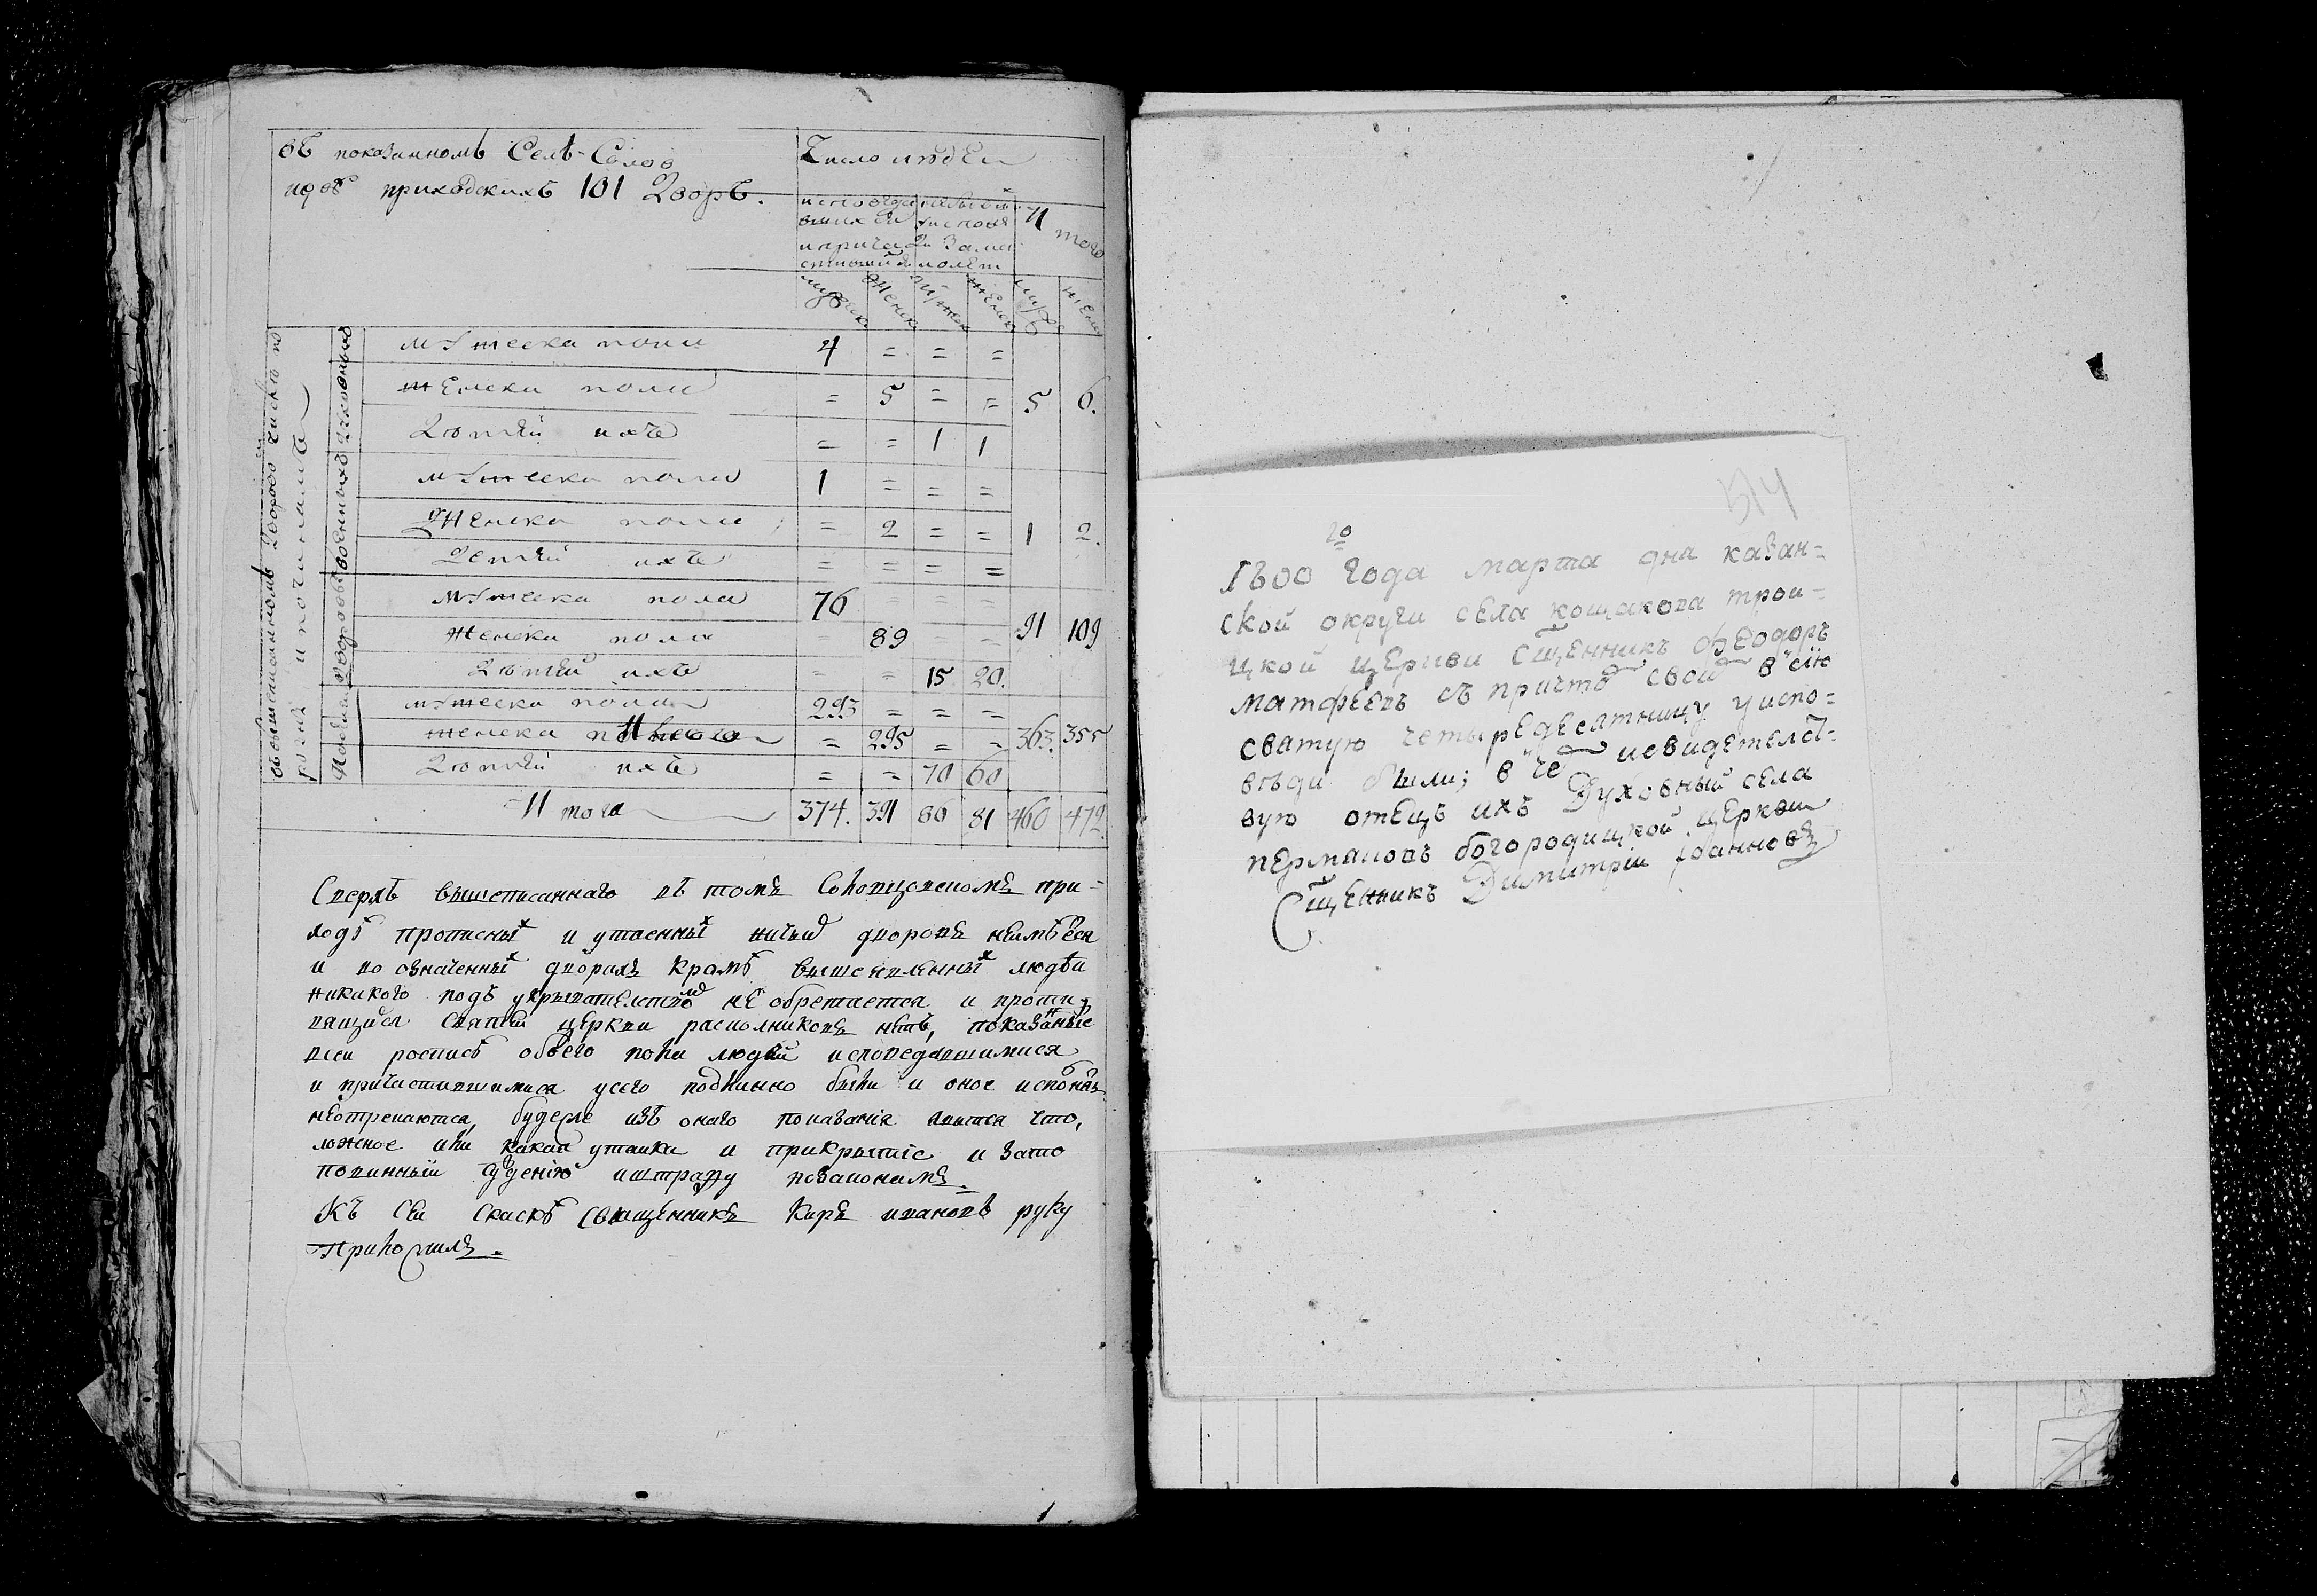 въ показанномъ Селѣ-
приходскихъ 101 Дворъ.
Число людей
исповеда
вших ся
и прича
стившийся
не бывш
у испове
ди за ма
лолет
И того
мужеск женск мужеск женск муж женск
Духовныхъ
мужеска пола 4 = = =
женска пола = 5 = = 5 6.
Дѣтей ихъ = = 1 1
военныхъ
мужеска пола 1 = = =
Женска пола = 2 = = 1 2.
Детей ихъ = = = =
Дворовы
мужеска пола 76 = = =
женска пола = 89 = = 91 109
Дѣтей ихъ = = 15 20.
мужеска пола 293 = = =
женска = 295 = = 363. 355
Дѣтей ихъ = = 70 60
И того 374. 391 86 81 460 472
Сверхъ вышеписаннаго въ томъ Солонцовскомъ при-
ходѣ прописныхъ и утаенныхъ ничьих дворовъ неимѣеся
и во означенныхъ дворяхъ кромѣ вышеявленныхъ людѣи
никакого подъ укрывателствомъ не обретается и проти-
вящихся святѣй церкви расколниковъ нетъ, показанные
всеи росписѣ обоего пола людѣй исповедавшимися
и причастившимися усего подлинно были и оное исповѣдь
неотрекаются, будеже изъ онаго показанія явится что,
ложное или какая утаика и прикрытіе и зато
повинный суденію иштрафу позаконамъ.
Къ сеи скаскѣ священникъ Киръ ивановъ руку
приложилъ.
514
1800го года марта дня казан=
ской округи села кощакова трои=
цкой церкви Сщенникъ феодоръ
матфеевъ съ причтомъ своимъ в сію
святую четыредесятницу у испо=
вѣди были; в чемъ исвидетелст=
вую отецъ ихъ Духовный села
пермяковъ богородицкой церкви
Сщенникъ Димитріи Іоанновъ